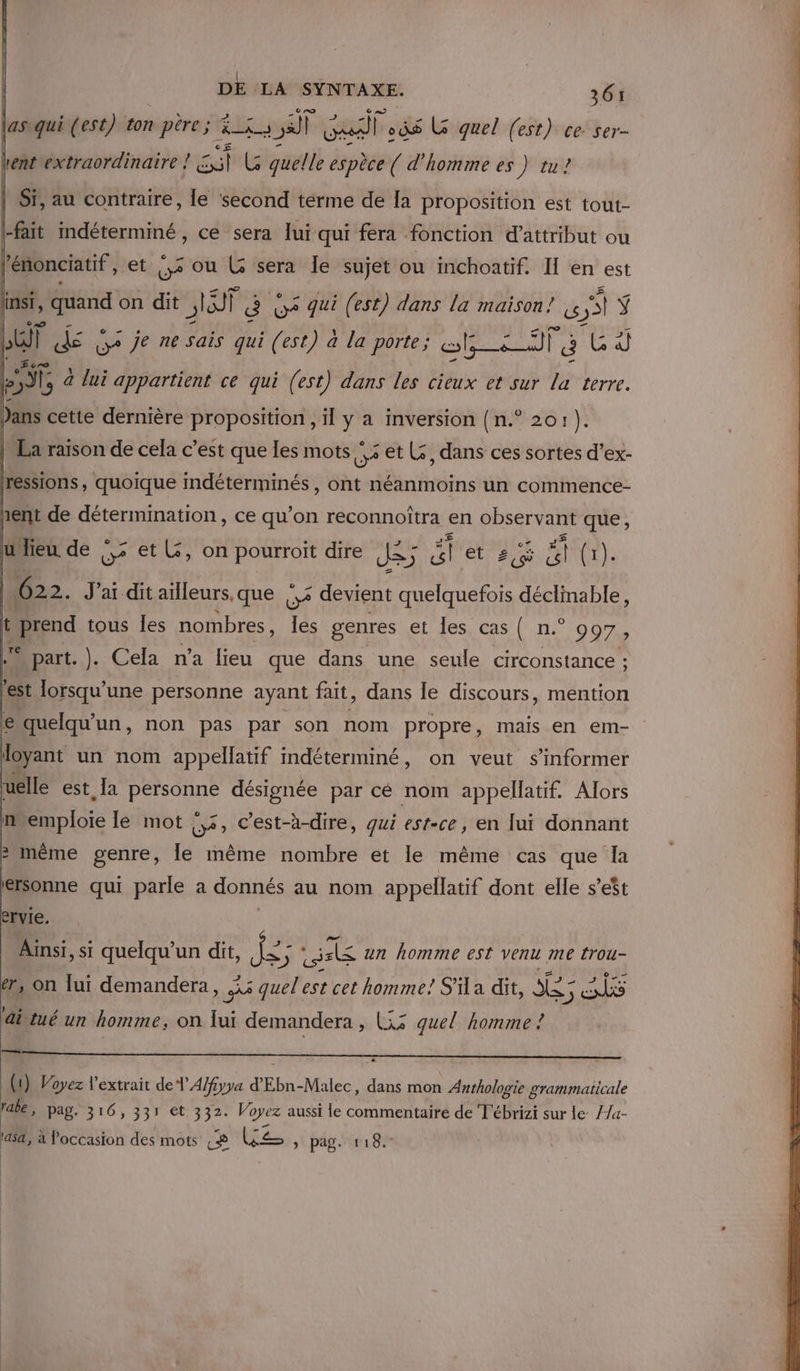 DE LA SYNTAXE. 361
as qui (est) ton père; ما هذه quel (est) ce ser-
ent extraordinaire ! ما أنت quelle espèce ( d'homme es ) tu ?
Si, au contraire, le second terme de la proposition est tout-
-fait indéterminé, ce sera lui qui fera fonction d'attribut ou
'énonciatif, et من ou ما sera le sujet ou inchoatif. Il en est
insi, quand on dit من في الدار qui (est) dans la maison? لا أدري
من على الباب je ne sais qui (est) à la porte; له ما في السموات
والأرض à lui appartient ce qui (est) dans les cieux et sur la terre.
Dans cette dernière proposition, il y a inversion (n.° 201).
La raison de cela c'est que les mots من et ما, dans ces sortes d'ex-
ressions, quoique indéterminés, ont néanmoins un commence-
ent de détermination, ce qu'on reconnoîtra en observant que,
u lieu de من et ما, on pourroit dire أي رجل et أي شيء (1).
622. J'ai dit ailleurs, que من devient quelquefois déclinable,
t prend tous les nombres, les genres et les cas ( n.° 997,
.re part. ). Cela n'a lieu que dans une seule circonstance ;
'est lorsqu'une personne ayant fait, dans le discours, mention
e quelqu'un, non pas par son nom propre, mais en em-
loyant un nom appellatif indéterminé, on veut s'informer
uelle est la personne désignée par ce nom appellatif. Alors
n emploie le mot من, c'est-à-dire, qui est-ce, en lui donnant
e même genre, le même nombre et le même cas que la
ersonne qui parle a donnés au nom appellatif dont elle s'est
ervie.
Ainsi, si quelqu'un dit, جاءني رجل un homme est venu me trou-
er, on lui demandera, منو quel est cet homme? S'il a dit, قتلت رجلا
'ai tué un homme, on lui demandera, منا quel homme?
(1) Voyez l'extrait de l'Alfiyya d'Ebn-Malec, dans mon Anthologie grammaticale
rabe, pag. 316, 331 et 332. Voyez aussi le commentaire de Tébrizi sur le Ha-
asa, à l'occasion des mots , pag. 118.